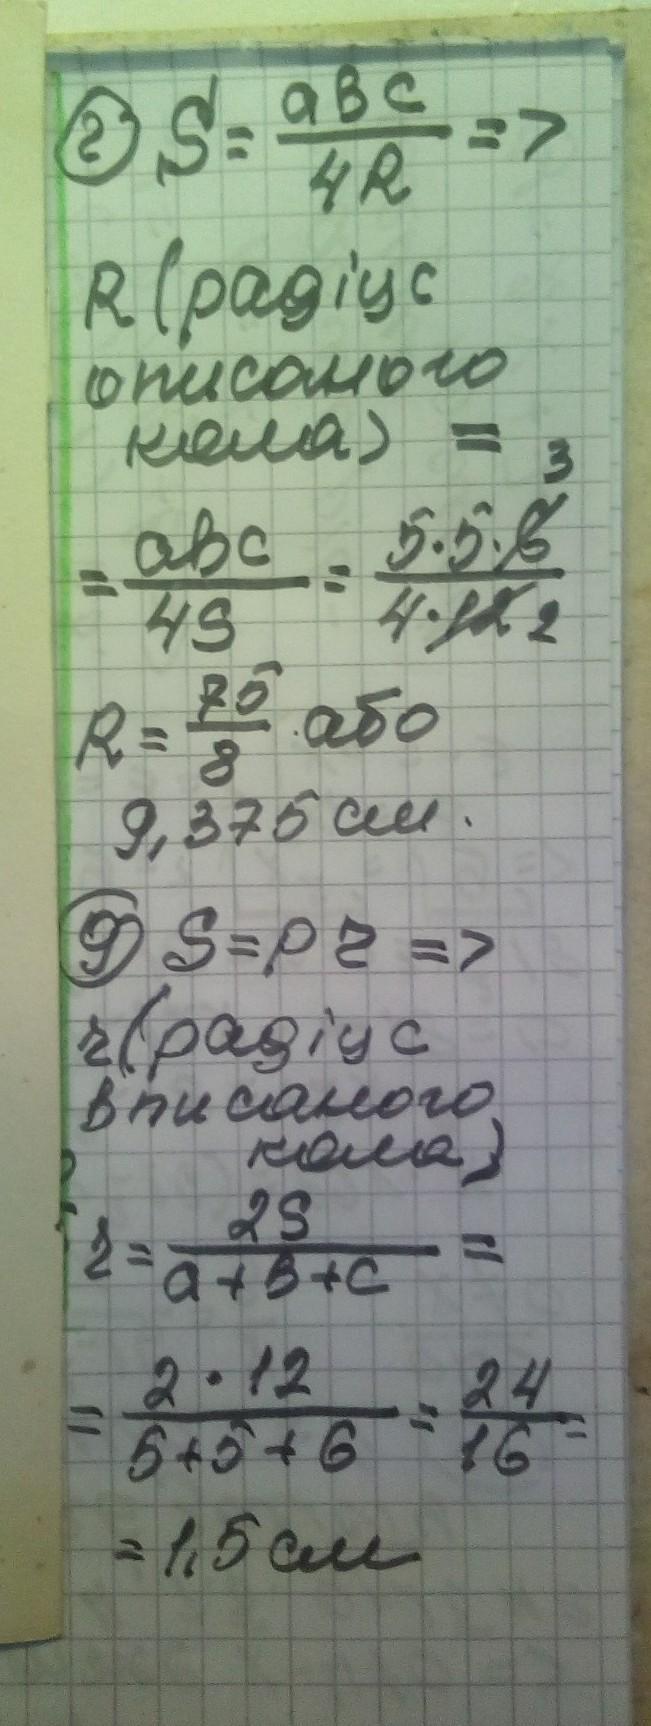 г) S = aвc / 4R =>
R (радіус
описаного
кола) =
= aвc / 4S = 5·5·6 3 / 4·12 2
R = 75/8 або
9,375 см.
д) S = p r =>
r (радіус
вписаного
кола)
r = 2S / a+в+c =
= 2·12 / 5+5+6 = 24/16 =
= 1,5 см